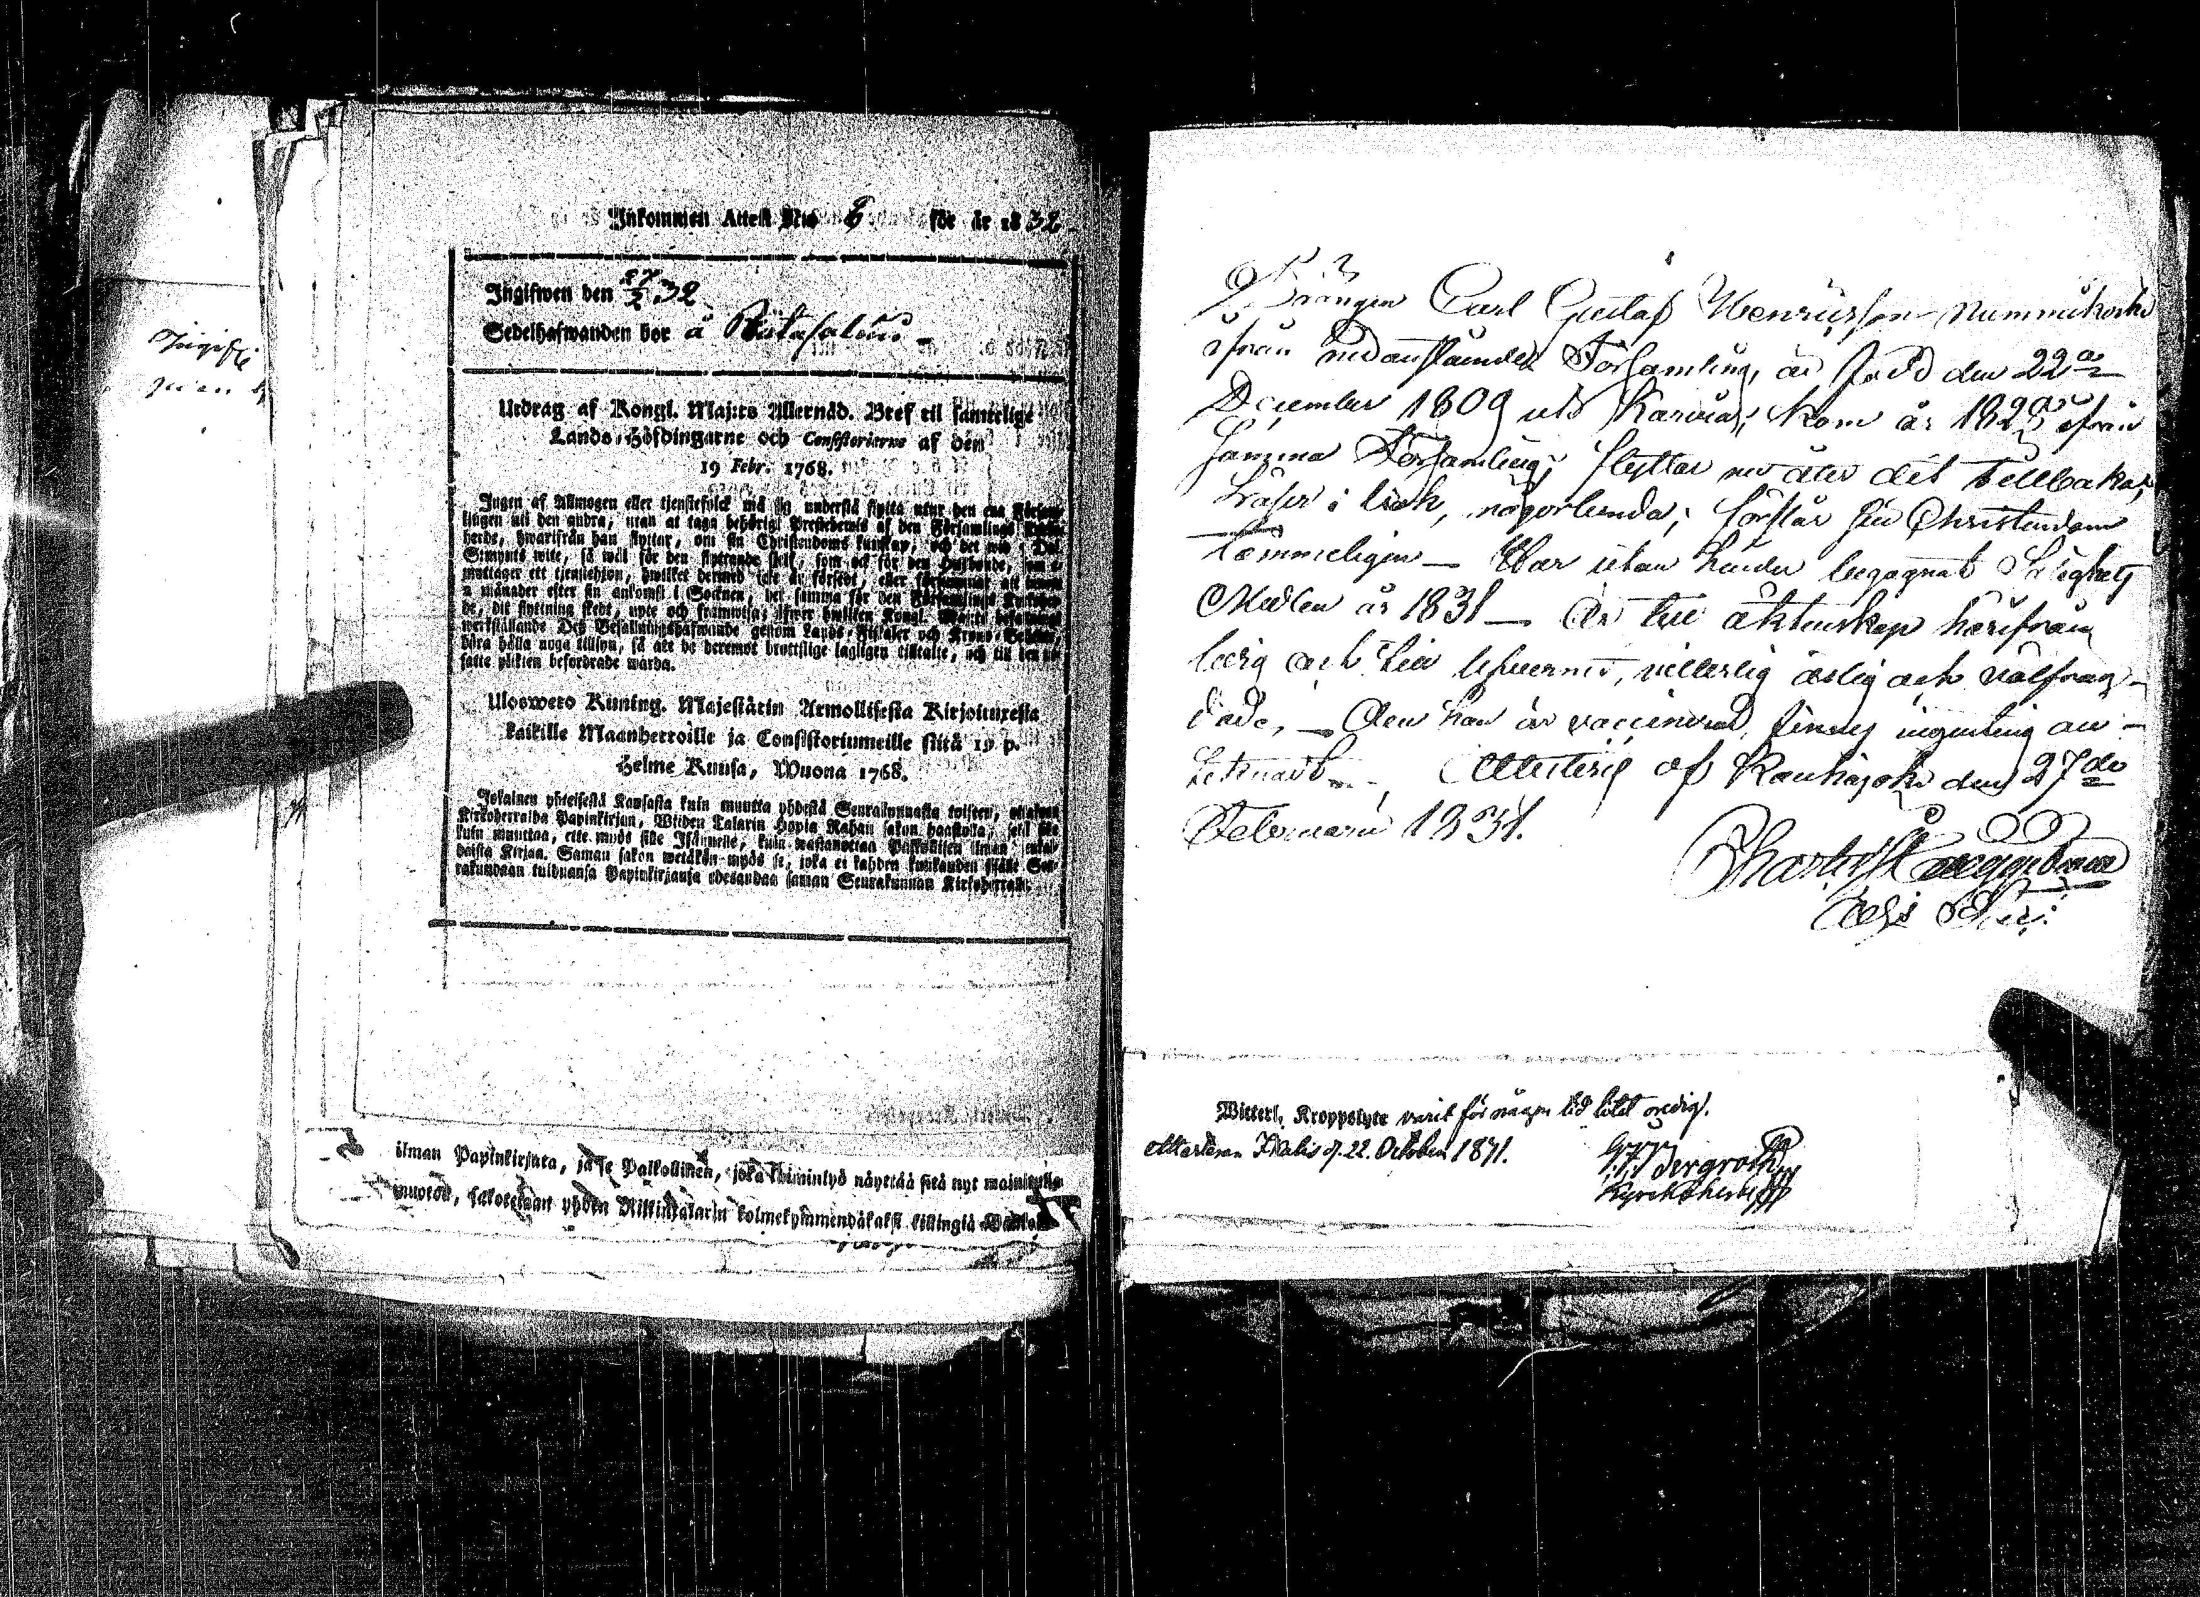 Inkommen Attest No 6 för år 1832
Ingifwen den 27/2 32
Sedelhafwanden bor å
Utdrag af Kongl. Maj:ts Allernåd. Bref til samtelige
Lands-Höfdingarne och Consistorierne af den
19 Febr. 1768.
Ingen af Allmogen eller tjenstefolck må sig understå flytta utur den ena Försam-
lingen uti den andra, utan at taga behörigt Prestebewis af den Församlings
herde, hwarifrån han flyttar, om sin Christendoms kunskap, och det wid
Silmynts wite, så wäl för den flyttande sielf, som ock för den Husbonde, som
mottager ett tjenstehjon, hwilket dermed icke är försedt, eller försummar att inom
2 månader efter sin ankomst i Socknen, det samma för den Församlings
de, dit flyttning skedt, upte och framwisa; öfwer hwilken Kongl. Maj:ts befallning
werkställande Dess Befallningshafwande genom Lands-Fiskaler och Krono-
böra hålla noga tillsyn, så att de deremot brottslige lagligen tilltalte, och till den ut-
satte plikten befordrade warda.
Uloswero Kuning. Majestätin Armollisesta Kirjoituxesta
kaikille Maanherroille ja Consistoriumeille siitä 19 p.
Helme Kuusa, Wuona 1768.
Jokainen yhteisestä Kansasta kuin muutta yhdestä Seurakunnasta toiseen, ottakaan
Kirkoherralda Papinkirjan, Wiiden Talarin Hopia Rahan sakon haastolla, sekä sille
kuin muuttaa, ette myös sille Isännelle, kuin wastanottaa Palkollisen ilman
daista Kirjaa. Saman sakon wetäkön myös se, joka ei kahden kuukauden sisälle Seu-
rakundaan tulduansa Papinkirjansa edesandaa saman Seurakunnan Kirkoherralle.
ilman Papinkirjata, ja se Palkollinen, joka toimintyö näyttää sitä nyt mainitulla
muotoa, sakotetaan yhden Riikintalarin kolmekymmendäkaksi killingiä
Drängen Carl Gustaf Henriksson Nummikoski
ifrån nedanstående Församling, är född den 22a
December 1809 uti Karvia; kom år 1829 ifrån
samma Församling; flyttar nu åter dit tillbaka;
Läser i bok, någorlunda; förstår sin Christendom
tämmeligen — Har utan hinder begagnat Salighets
Medlen år 1831 — Är till äktenskap härifrån
ledig och till lefverne, vitterlig ärlig och välfräg-
dade, — Om han är vaccinerad, finnes ingenting an-
tecknadt. — Attesterij af Kauhajoki den 27de
Februarii 1831.
Witterl. Kroppslyte varit för någon tid litet oredig.
Attesteras Ikalis d. 22. October 1831.